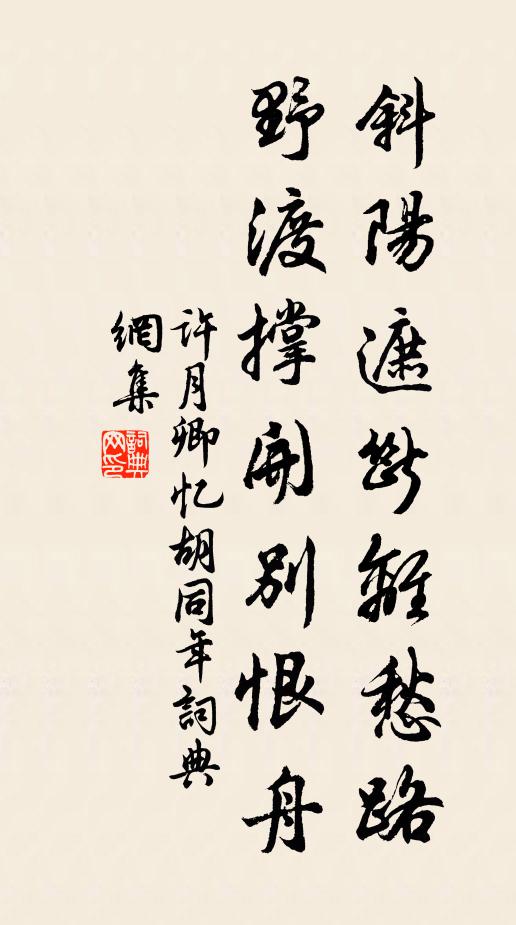 斜陽遮断離愁路
野渡撑開別恨舟
許月卿忆胡同年詞典
網集
詞典網印